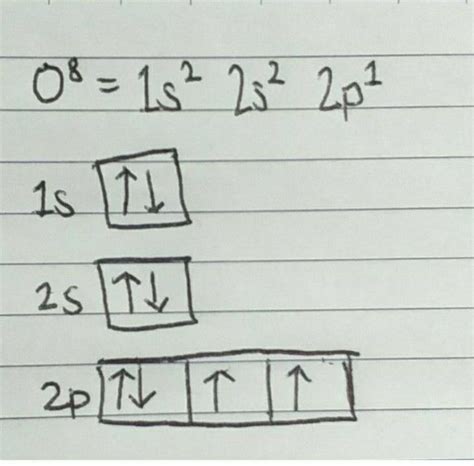 O⁸ = 1s² 2s² 2p¹
1s ↑↓
2s ↑↓
2p ↑↓ ↑ ↑